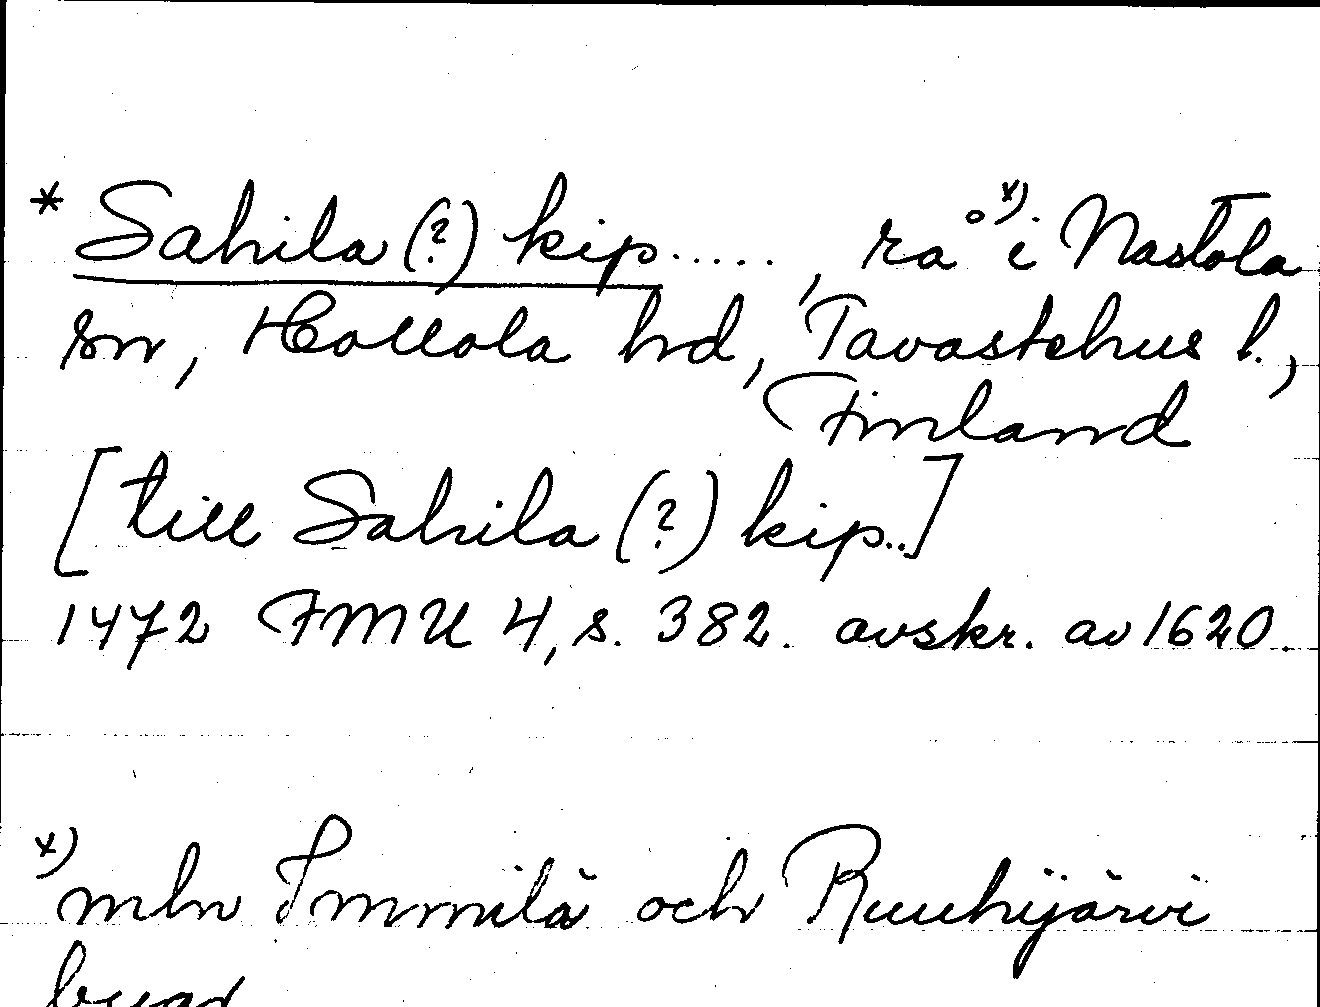 * Sahila (?) kip....., rå x) i Nastola
sn, Hollola hd, Tavastehus l.,
Finland
[till Sahila (?) kip..]
1472 FMU 4, s. 382. avskr. av 1620.
x) mln Immilä och Ruuhijärvi
byar